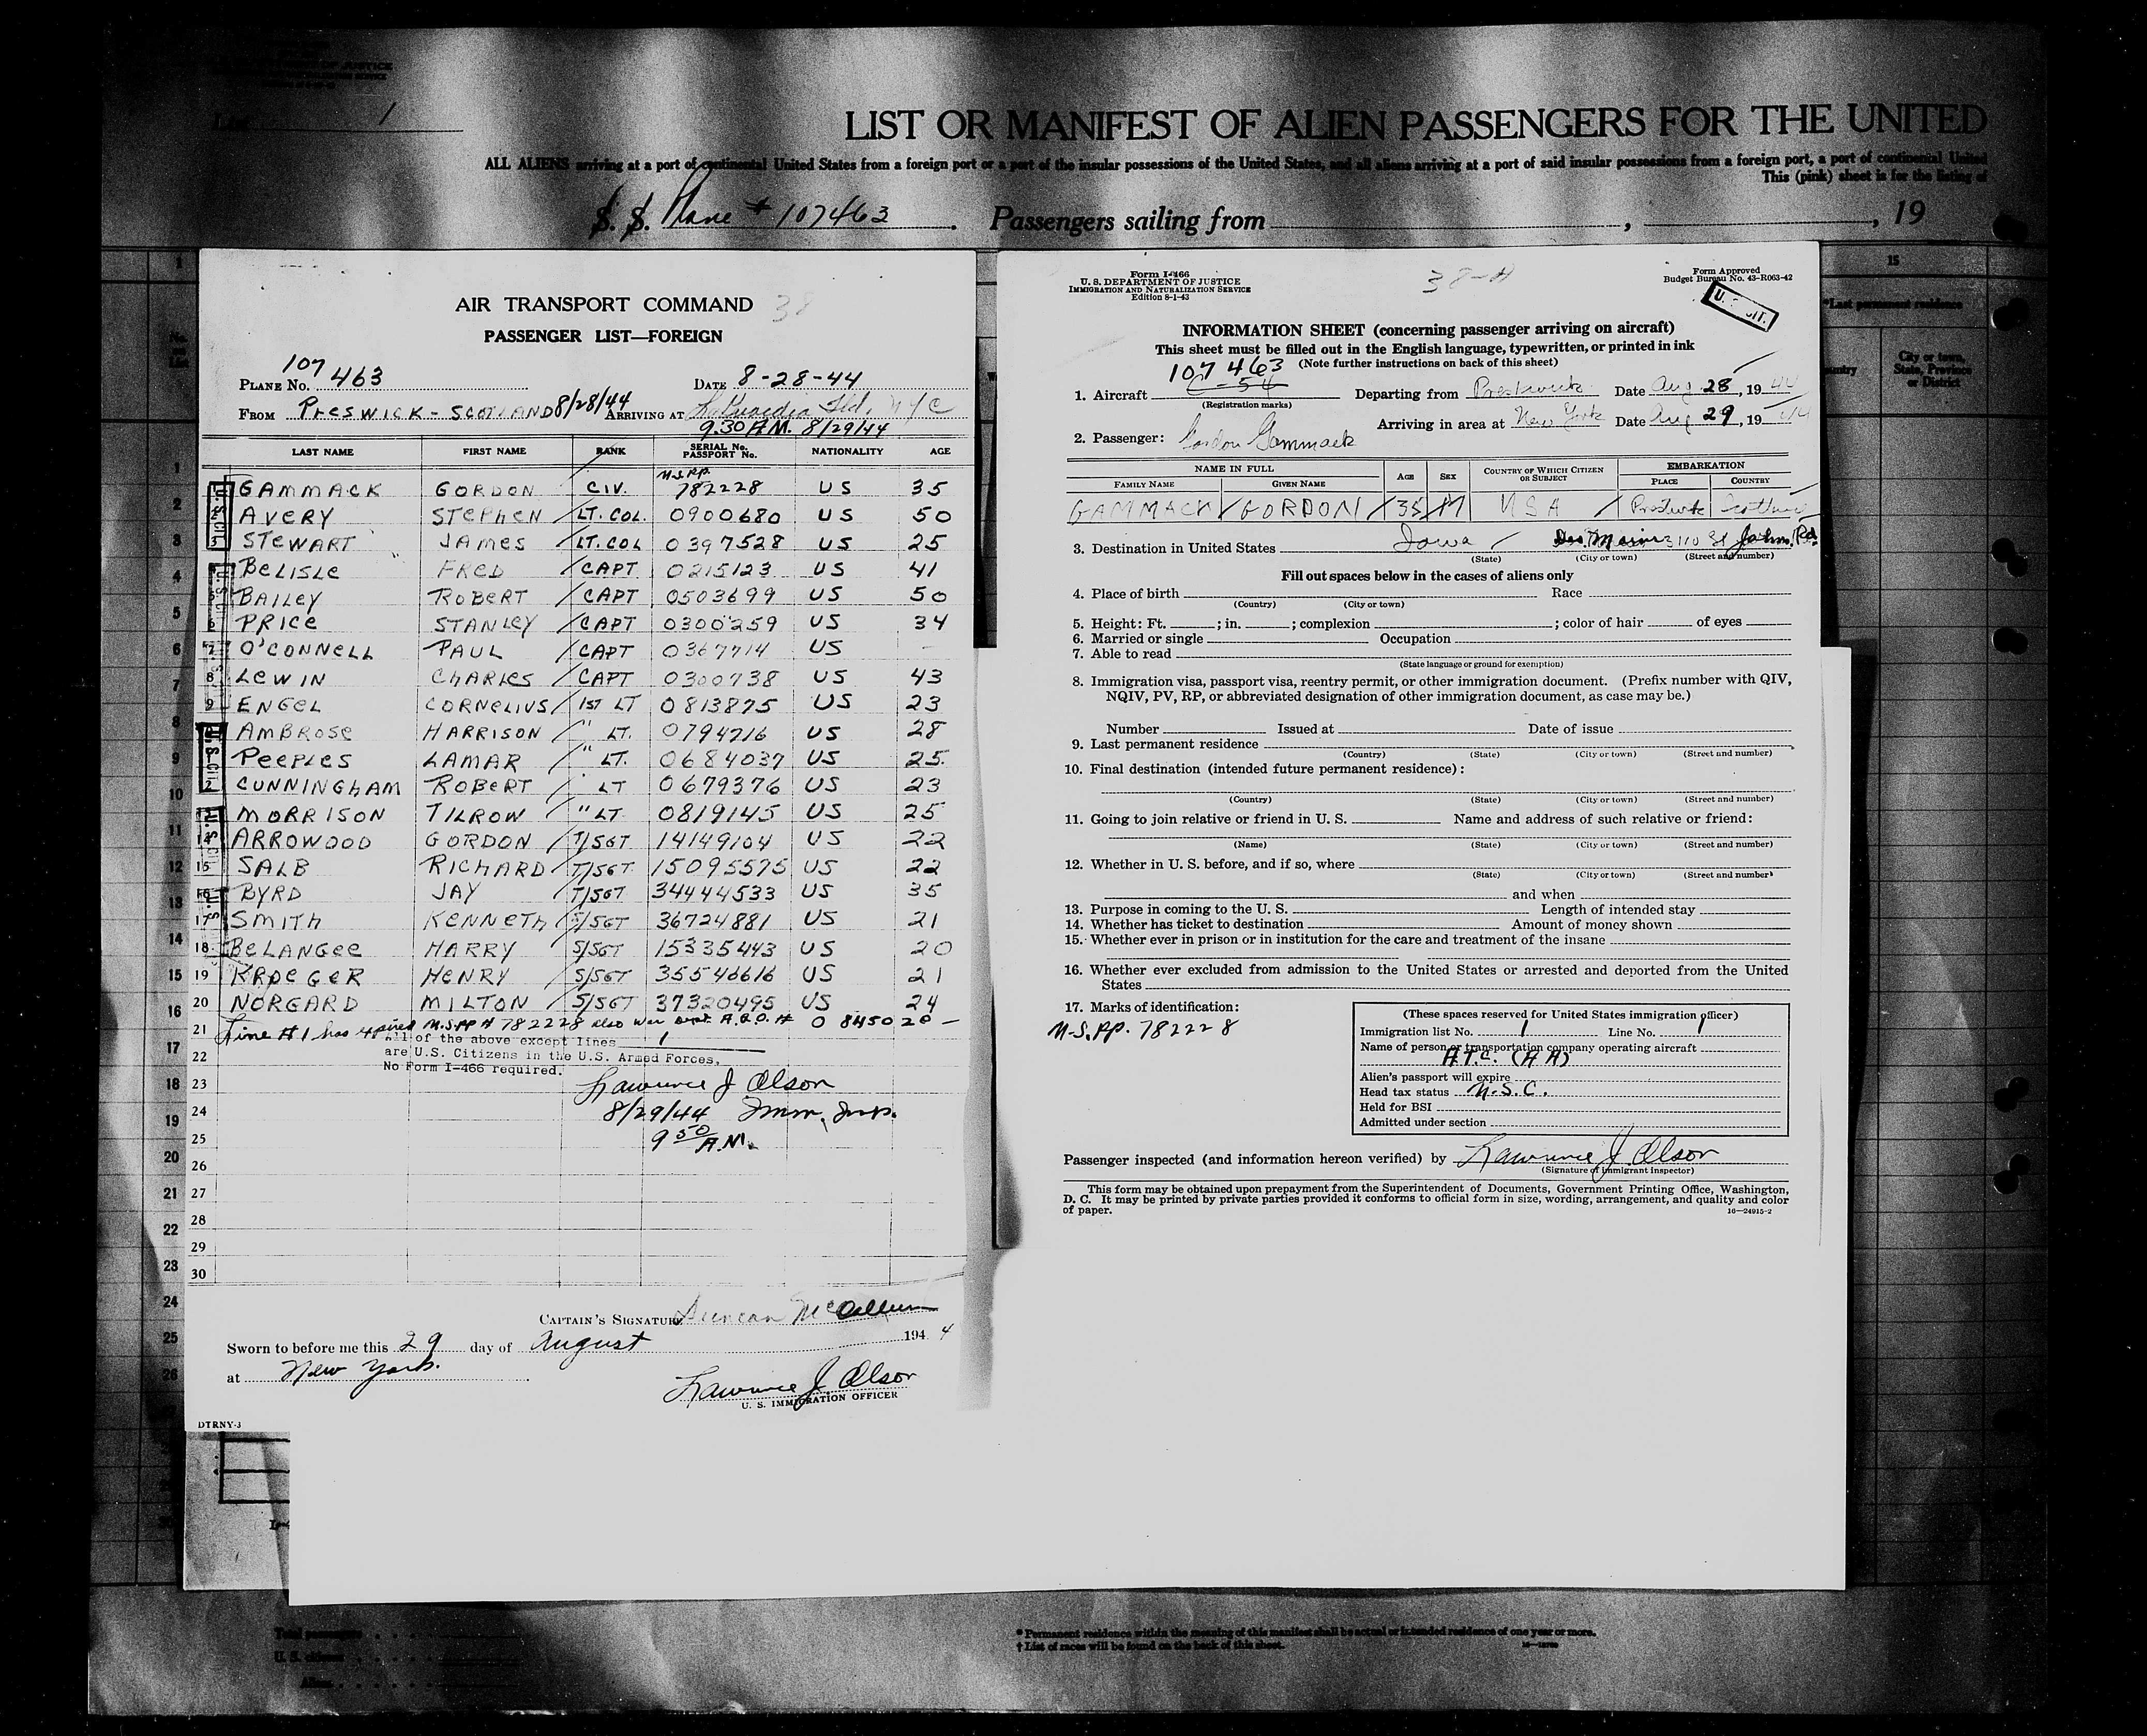 LIST OR MANIFEST OF ALIEN PASSENGERS FOR THE UNITED
1
ALL ALIENS arriving at a port of continental United States from a foreign port or a port of the insular possessions of the United States, and all aliens arriving at a port of said insular possessions from a foreign port, a port of continental United
This (pink) sheet is for the listing of
S. S. Plane # 107463. Passengers sailing from , , 19
AIR TRANSPORT COMMAND 38
PASSENGER LIST—FOREIGN
PLANE No. 107463 DATE 8-28-44
FROM PRESWICK - SCOTLAND 8/28/44 ARRIVING AT La Guardia Fld, NYC
9.30 A.M. 8/29/44
LAST NAME FIRST NAME RANK SERIAL No. PASSPORT No. NATIONALITY AGE
GAMMACK GORDON CIV. U.S.PP. 782228 US 35
AVERY STEPHEN LT. COL. 0900680 US 50
STEWART JAMES LT. COL 0397528 US 25
BELISLE FRED CAPT 0215123 US 41
BAILEY ROBERT CAPT 0503699 US 50
PRICE STANLEY CAPT 0300259 US 34
O'CONNELL PAUL CAPT 0367714 US -
8 LEWIN CHARLES CAPT 0300738 US 43
9 ENGEL CORNELIUS 1ST LT 0813875 US 23
AMBROSE HARRISON " LT. 0794716 US 28
PEEPLES LAMAR " LT. 0684037 US 25
CUNNINGHAM ROBERT LT 0679376 US 23
MORRISON TILROW " LT 0819145 US 25
14 ARROWOOD GORDON T/SGT 14149104 US 22
15 SALB RICHARD T/SGT 15095575 US 22
16 BYRD JAY T/SGT 34444533 US 35
17 SMITH KENNETH S/SGT 36724881 US 21
18 BELANGEE HARRY S/SGT 15335443 US 20
19 KROEGER HENRY S/SGT 35546616 US 21
20 NORGARD MILTON S/SGT 37320495 US 24
21 Line #1 has U.S.PP # 782228 also War Dept. A.G.O. # 0 845020 —
All of the above except lines 1
22 are U.S. Citizens in the U.S. Armed Forces,
No Form I-466 required.
23 Lawrence J Olson
24 8/29/44 Imm. Insp.
25 9 50 A.M.
26
27
28
29
30
CAPTAIN'S SIGNATURE Duncan McCallum
Sworn to before me this 29 day of August 1944
at New York.
Lawrence J Olson
U. S. IMMIGRATION OFFICER
DTRNY-3
Form I-466
U. S. DEPARTMENT OF JUSTICE
IMMIGRATION AND NATURALIZATION SERVICE
Edition 8-1-43
38-A
Form Approved
Budget Bureau No. 43-R063-42
U. S. CIT.
INFORMATION SHEET (concerning passenger arriving on aircraft)
This sheet must be filled out in the English language, typewritten, or printed in ink
(Note further instructions on back of this sheet)
107463
1. Aircraft C-54 Departing from Prestwick Date Aug 28, 1944
(Registration marks)
Arriving in area at New York Date Aug 29, 1944
2. Passenger: Gordon Gammack
NAME IN FULL AGE SEX COUNTRY OF WHICH CITIZEN OR SUBJECT EMBARKATION
FAMILY NAME GIVEN NAME PLACE COUNTRY
GAMMACK GORDON 35 M USA Prestwick Scotland
3. Destination in United States Iowa Des Moines 3110 St Johns, Rd.
(State) (City or town) (Street and number)
Fill out spaces below in the cases of aliens only
4. Place of birth Race
(Country) (City or town)
5. Height: Ft. ; in. ; complexion ; color of hair of eyes
6. Married or single Occupation
7. Able to read
(State language or ground for exemption)
8. Immigration visa, passport visa, reentry permit, or other immigration document. (Prefix number with QIV,
NQIV, PV, RP, or abbreviated designation of other immigration document, as case may be.)
Number Issued at Date of issue
9. Last permanent residence
(Country) (State) (City or town) (Street and number)
10. Final destination (intended future permanent residence):
(Country) (State) (City or town) (Street and number)
11. Going to join relative or friend in U. S. Name and address of such relative or friend:
(Name) (State) (City or town) (Street and number)
12. Whether in U. S. before, and if so, where
(State) (City or town) (Street and number)
and when
13. Purpose in coming to the U. S. Length of intended stay
14. Whether has ticket to destination Amount of money shown
15. Whether ever in prison or in institution for the care and treatment of the insane
16. Whether ever excluded from admission to the United States or arrested and deported from the United
States
17. Marks of identification:
U.S.PP. 782228
(These spaces reserved for United States immigration officer)
Immigration list No. 1 Line No. 1
Name of person or transportation company operating aircraft
A.T.C. (AA)
Alien's passport will expire
Head tax status U.S.C.
Held for BSI
Admitted under section
Passenger inspected (and information hereon verified) by Lawrence J. Olson
(Signature of immigrant inspector)
This form may be obtained upon prepayment from the Superintendent of Documents, Government Printing Office, Washington,
D. C. It may be printed by private parties provided it conforms to official form in size, wording, arrangement, and quality and color
of paper.
16—24915-2
15
*Last permanent residence
City or town, State, Province or District
* Permanent residence within the meaning of this manifest shall be actual or intended residence of one year or more.
† List of races will be found on the back of this sheet.
Total passengers
U. S. citizens
Aliens